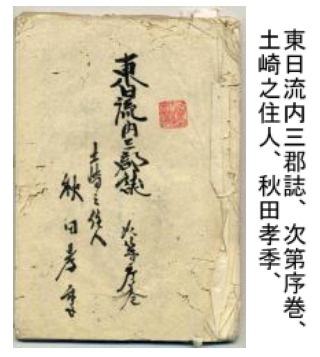 東日流内三郡誌
次第序巻
土崎之住人
秋田孝季
東日流内三郡誌、次第序巻、
土崎之住人、秋田孝季、